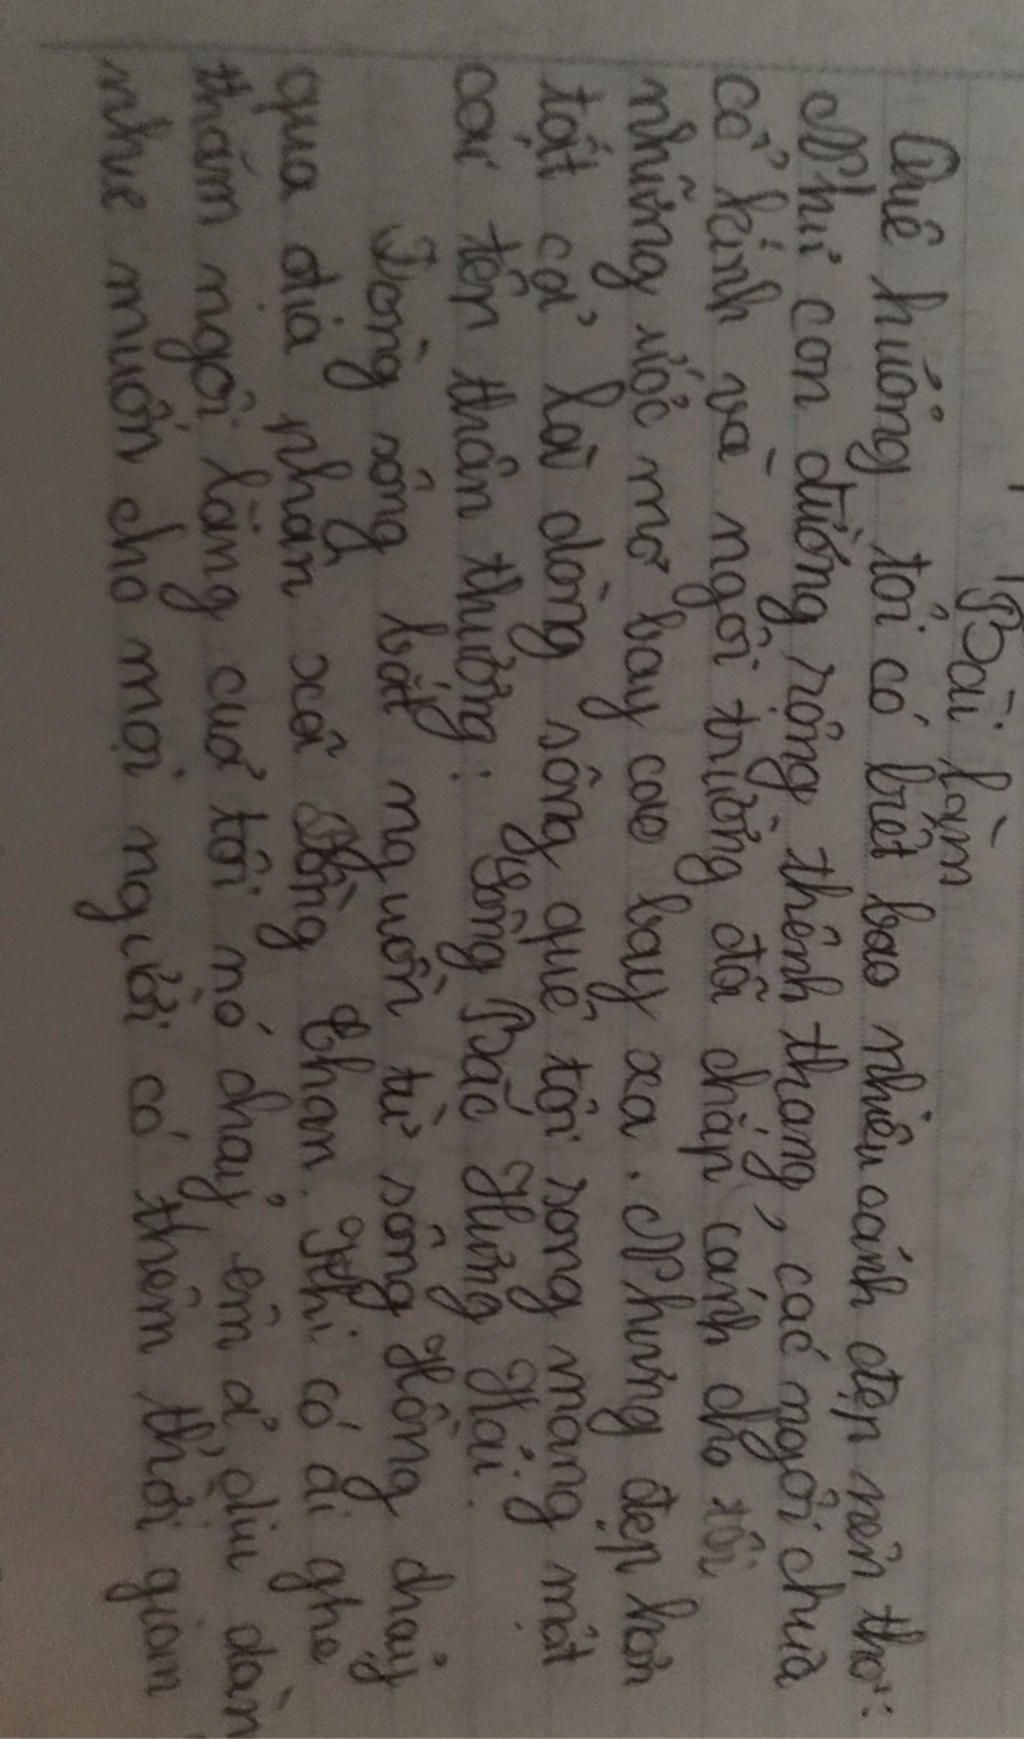 Bài làm
Quê hương tôi có biết bao nhiêu cảnh đẹp nên thơ:
Như con đường rộng thênh thang, các ngôi chùa
cổ kính và ngôi trường đã chắp cánh cho tôi
những ước mơ bay cao bay xa. Nhưng đẹp hơn
tất cả là dòng sông quê tôi song mang một
cái tên thân thương: Sông Bắc Hưng Hải.
Dòng sông bắt nguồn từ sông Hồng chảy
qua địa phận xã Than. Khi có ai ghé
thăm ngôi làng của tôi nó chảy êm ả, dịu dàng
như muốn cho mọi người có thêm thời gian